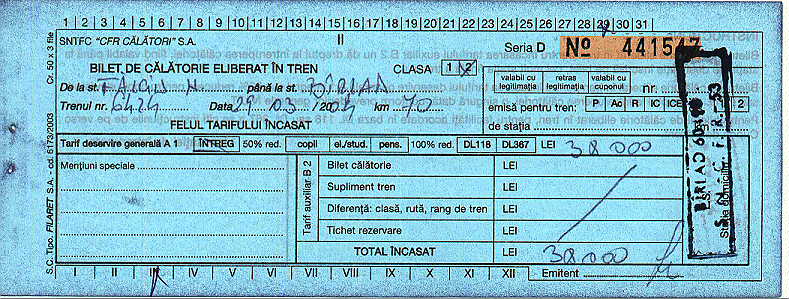 1 2 3 4 5 6 7 8 9 10 11 12 13 14 15 16 17 18 19 20 21 22 23 24 25 26 27 28 29 30 31
SNTFC "CFR CĂLĂTORI" S.A.
II
Seria D Nº 441547
BILET DE CĂLĂTORIE ELIBERAT ÎN TREN
CLASA 1 2
De la st. până la st. BÎRLAD
valabil cu legitimația
retras legitimația
valabil cu cuponul
nr.
Trenul nr. 6424 Data 29 03 / 20 km 70
emisă pentru tren: P Ac R IC ICE 2
FELUL TARIFULUI ÎNCASAT
de stația
Tarif deservire generală A 1 ÎNTREG 50% red. copii el./stud. pens. 100% red. DL118 DL367 LEI 38000
Mențiuni speciale
Tarif auxiliar B 2
Bilet călătorie LEI
Supliment tren LEI
Diferență: clasă, rută, rang de tren LEI
Tichet rezervare LEI
TOTAL ÎNCASAT LEI 38000
I II III IV V VI VII VIII IX X XI XII
Emitent
Cr. 50 x 3 file
S.C. Tipo. FILARET S.A. - cd. 6173/2003
S.N.C.F.R.-53
Stația domiciliu
L.S.